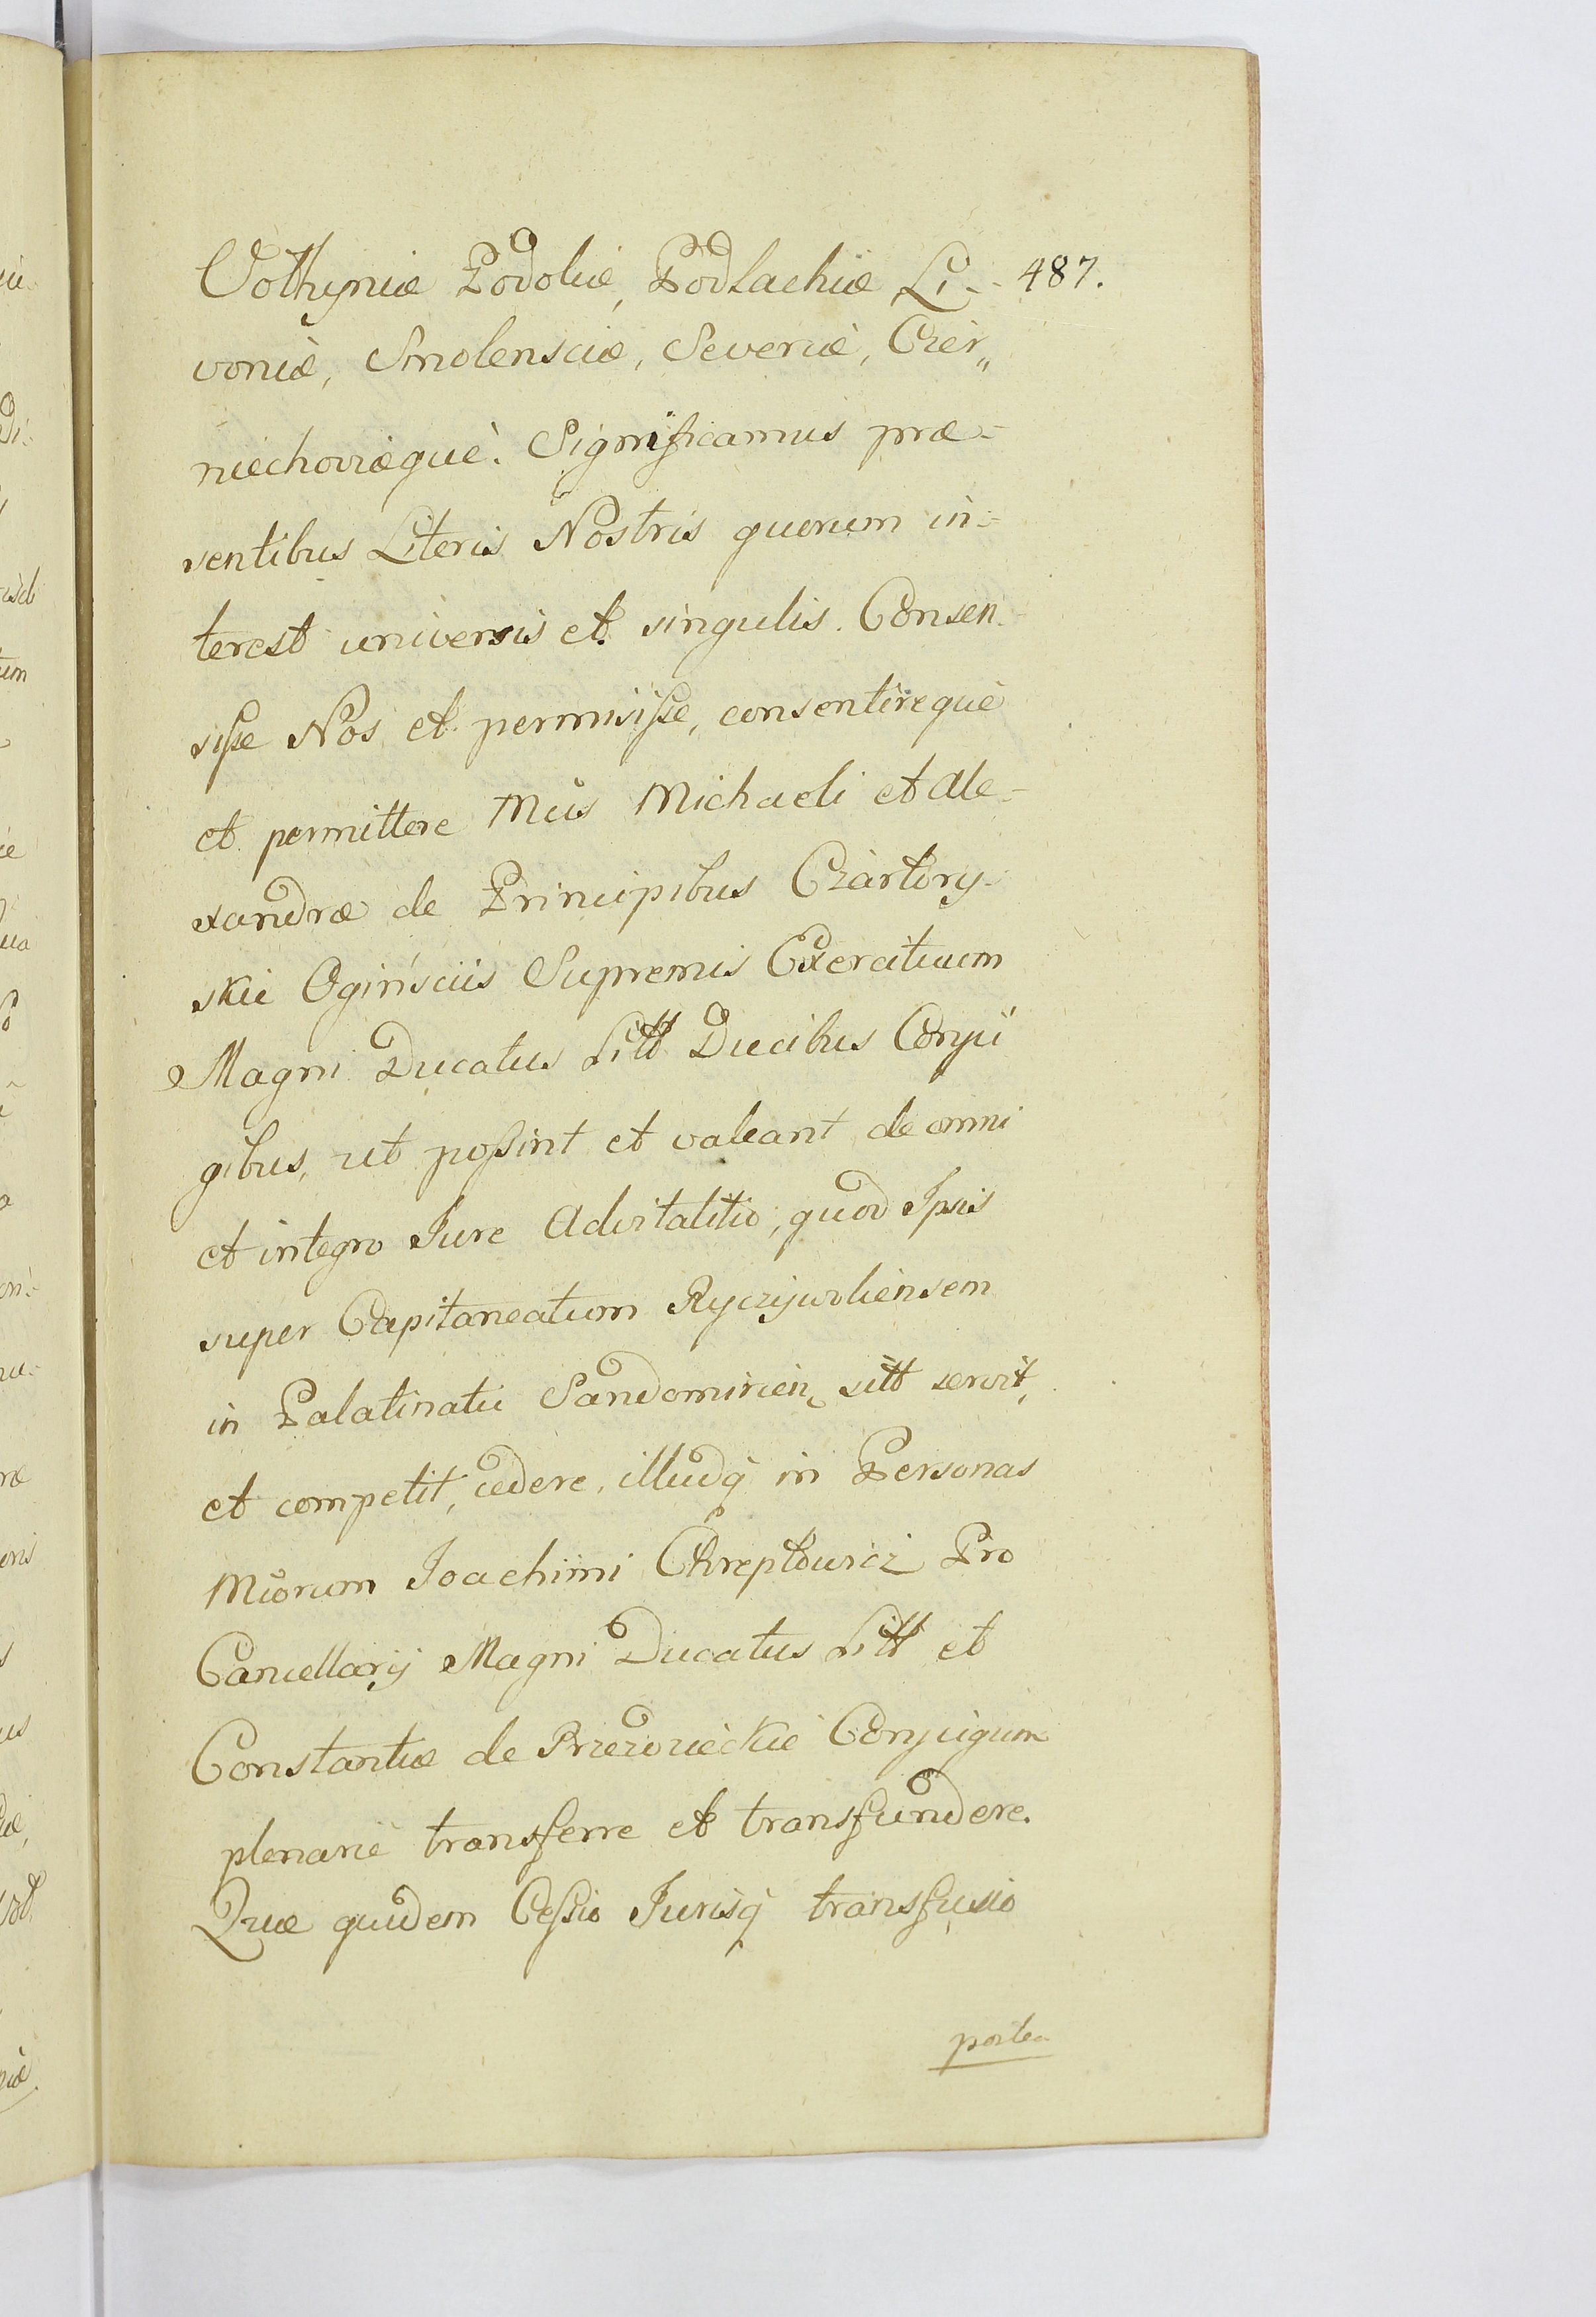 Volhyniæ Podoliæ, Podlachiæ Li- 487.
voniæ, Smolensciæ, Severiæ, Czer„
niechoviæquè. Significamus præ-
sentibus Literis Nostris quorum in-
terest universis et singulis. Consen-
siſse Nos et permisiſse, consentirequè
et permittere Mcis Michaeli et Ale-
xandræ de Principibus Czartory-
skie Ogińsciis Supremis Exercituum
Magni Ducatus Litt Ducibus Conju
gibus, ut poſsint et valeant de omni
et integro Jure Advitalitio, quod Ipsis
super Capitaneatum Ryczywoliensem
in Palatinatu Sandomirien, sitt servit,
et competit, cedere, illudq in Personas
Mcorum Joachimi Chreptowicz Pro
Cancellarij Magni Ducatus Litt et
Constantiæ de Przezdzieckie Conjugum
plenariè transferre et transfundere.
Quæ quidem Ceſsio Jurisq transfusio
postea